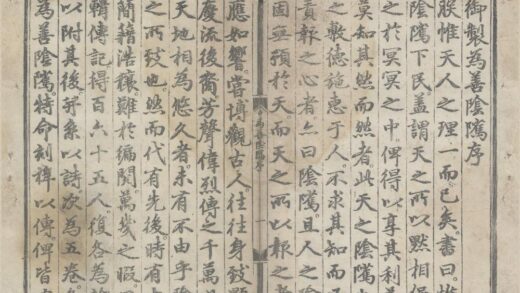 御製為善陰隲序
朕惟天人之理一而已矣書曰惟
陰隲下民蓋謂天之所以默相保
之於冥冥之中俾得以享其利益
莫知其然而然者此天之陰隲
之敷德施惠于人不求其知而
責報之心者亦曰陰隲且人之陰
固無預於天而天之所以報之者
為善陰隲序
一
應如響嘗博觀古人往往身致顯
慶流後裔芳聲偉烈傳之千萬
天地相為悠久者未有不由乎陰
之所致也然而代有先後時有
簡籍浩穰難於徧閱萬幾之暇
輯傳記得百六十五人復各為
以附其後并系以詩次為五卷
為善陰隲特命刻梓以傳俾皆